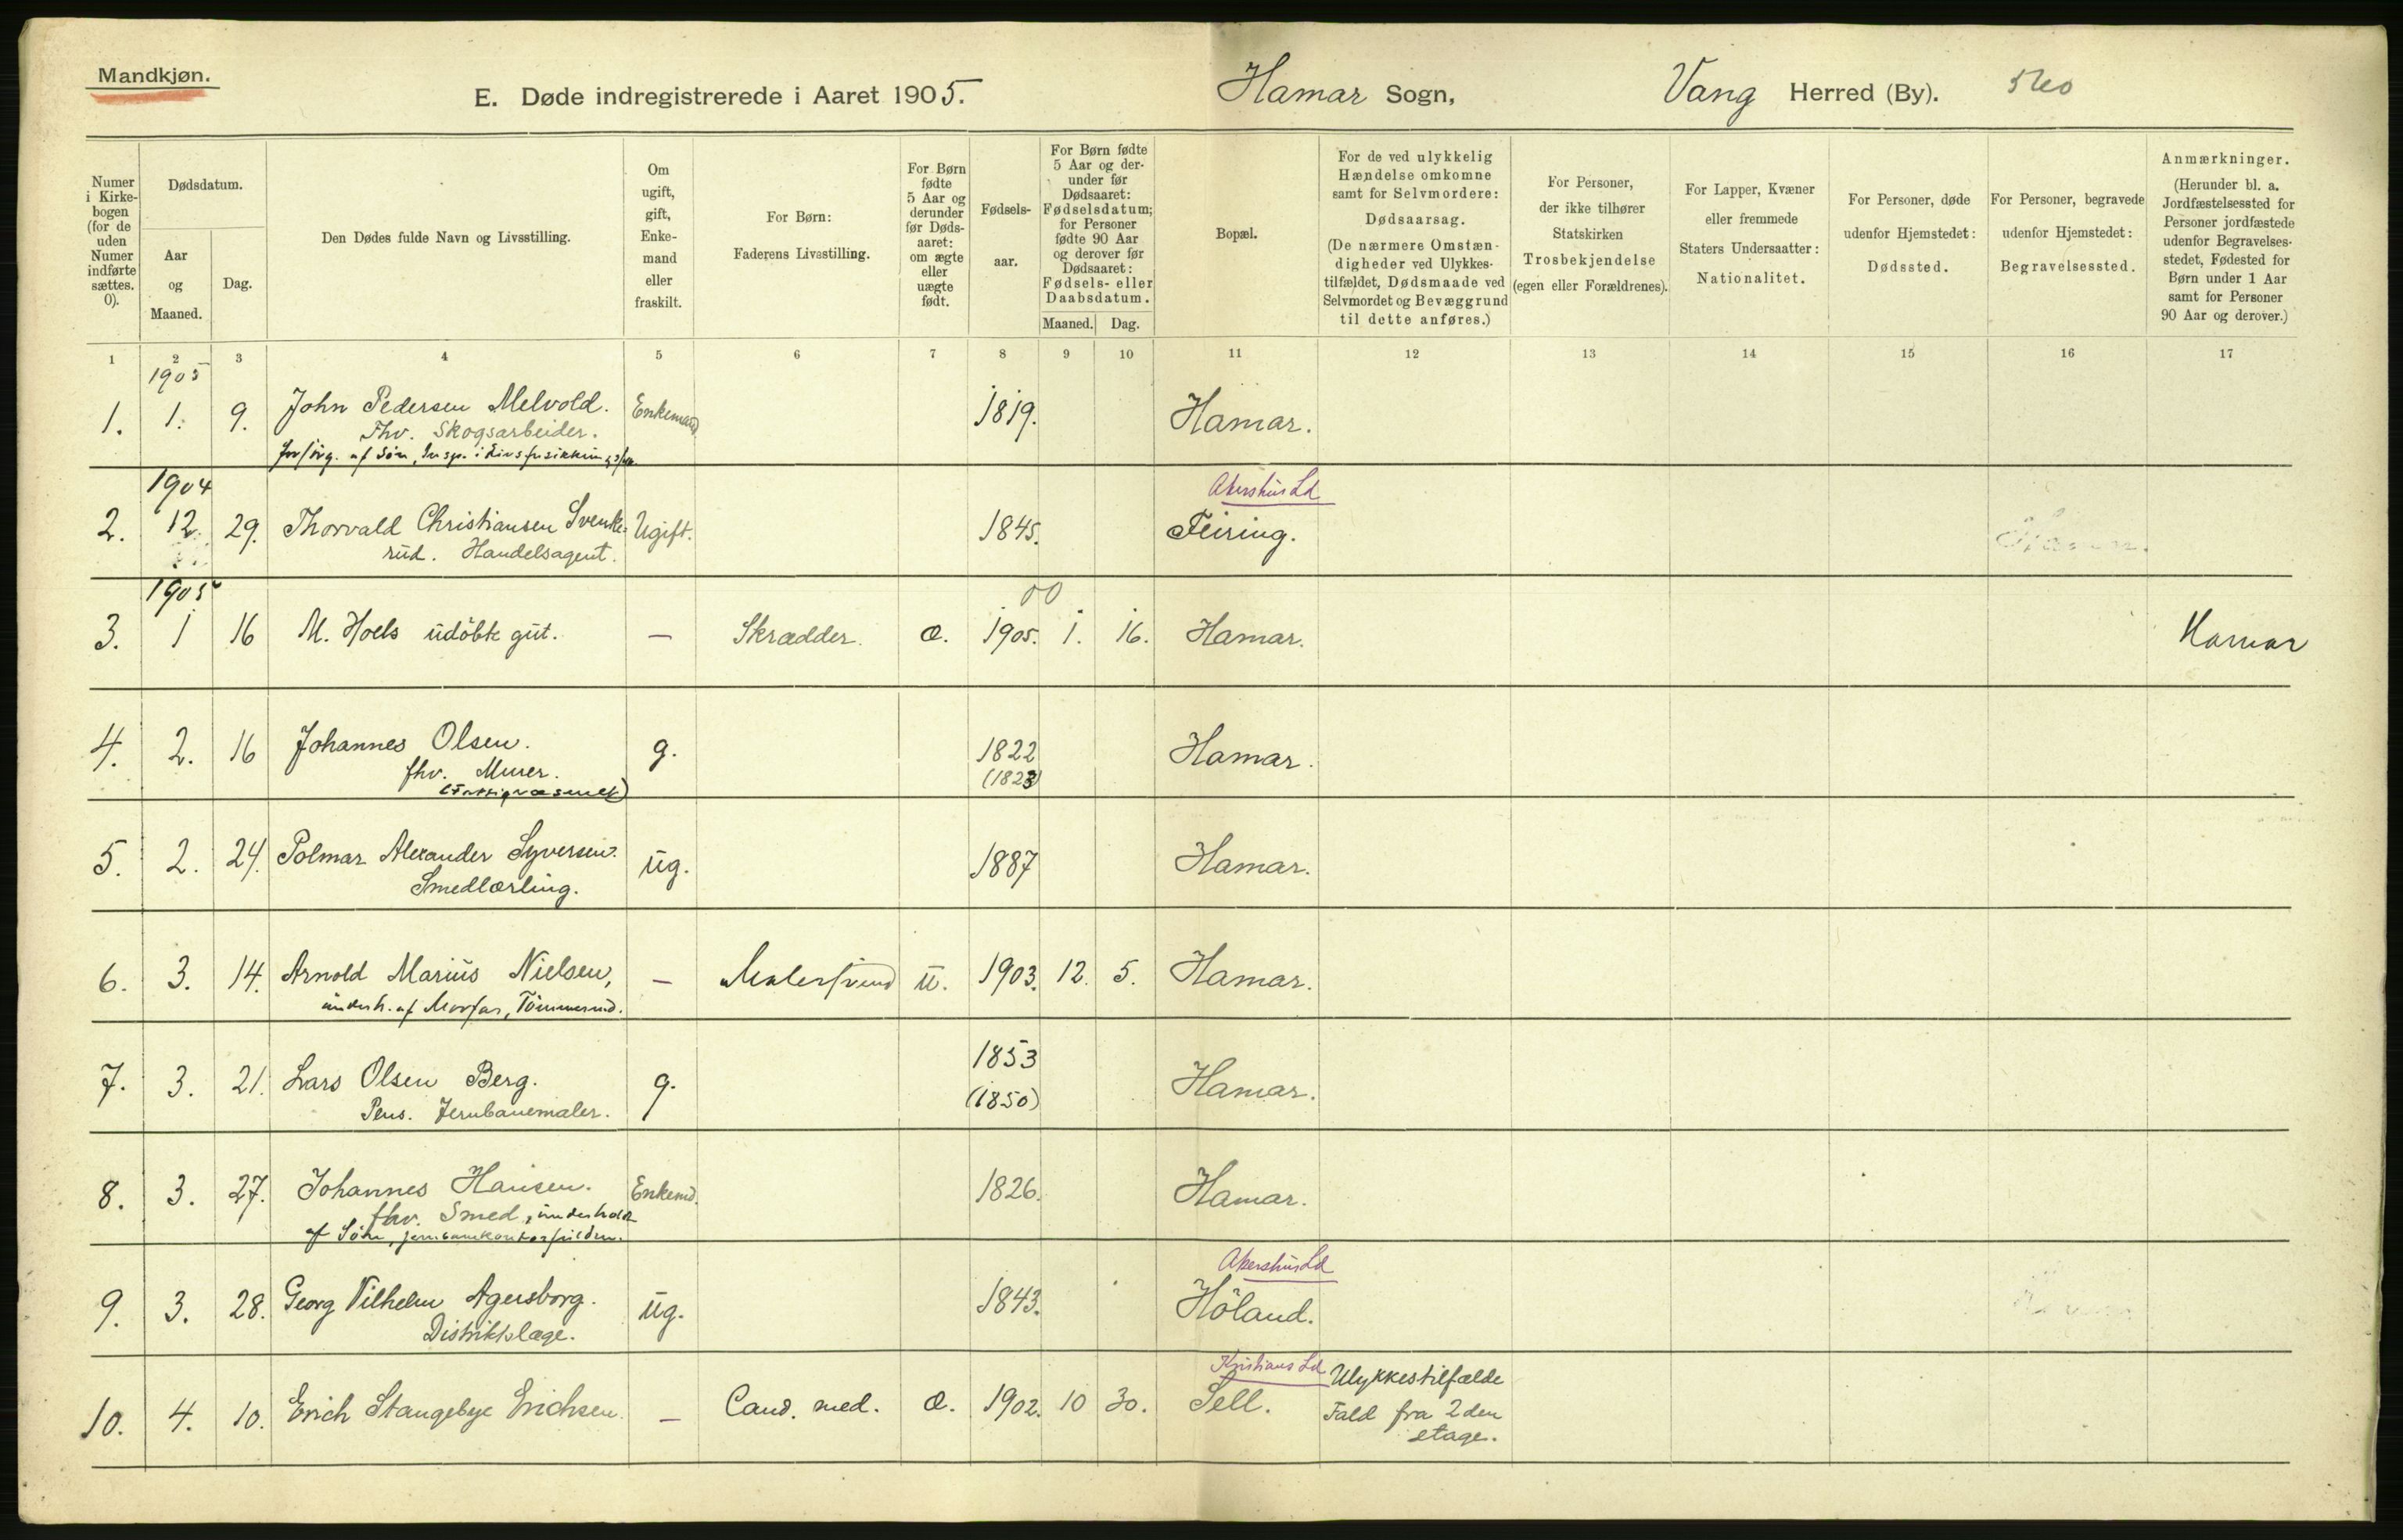 Mandkjøn.
E. Døde indregistrerede i Aaret 1905. Hamar Sogn, Vang Herred (By).
Numer i Kirkebogen (for de uden Numer indførte sættes. 0).
Dødsdatum.
Aar og Maaned.
Dag.
Den Dødes fulde Navn og Livsstilling.
Om ugift, gift, Enkemand eller fraskilt.
For Børn: Faderens Livsstilling.
For Børn fødte 5 Aar og derunder før Dødsaaret: om ægte eller uægte født.
Fødselsaar.
For Børn fødte 5 Aar og derunder før Dødsaaret: Fødselsdatum; for Personer fødte 90 Aar og derover før Dødsaaret: Fødsels- eller Daabsdatum.
Maaned. Dag.
Bopæl.
For de ved ulykkelig Hændelse omkomne samt for Selvmordere: Dødsaarsag. (De nærmere Omstændigheder ved Ulykkestilfældet, Dødsmaade ved Selvmordet og Bevæggrund til dette anføres.)
For Personer, der ikke tilhører Statskirken Trosbekjendelse (egen eller Forældrenes).
For Lapper, Kvæner eller fremmede Staters Undersaatter: Nationalitet.
For Personer, døde udenfor Hjemstedet: Dødssted.
For Personer, begravede udenfor Hjemstedet: Begravelsessted.
Anmærkninger. (Herunder bl. a. Jordfæstelsessted for Personer jordfæstede udenfor Begravelsesstedet, Fødested for Børn under 1 Aar samt for Personer 90 Aar og derover.)
1 2 3 4 5 6 7 8 9 10 11 12 13 14 15 16 17
1905
1. 1. 9. John Pedersen Melvold. Enkemand 1819. Hamar.
Fhv. Skogsarbeider.
forsørg. af Søn,
1904 Akershus Ld
2. 12. 29. Thorvald Christiansen Svenke= Ugift. 1845. Feiring.
rud. Handelsagent.
1905 00
3. 1 16 M. Hoels udöbte gut. — Skrædder. æ. 1905. 1. 16. Hamar. Hamar
4. 2. 16 Johannes Olsen. g. 1822 Hamar.
fhv. Murer. (1823)
(Fattigvæsenet)
5. 2. 24. Polmar Alexander Syversen. ug. 1887 Hamar.
Smedlærling.
6. 3. 14. Arnold Marius Nielsen, — Malersvend u. 1903. 12. 5. Hamar.
underh. af Morfar, Tömmermd.
7. 3. 21. Lars Olsen Berg. g. 1853 Hamar.
Pens. Jernbanemaler. (1850)
8. 3. 27. Johannes Hansen. Enkemd. 1826. Hamar.
fhv. Smed, underholdt
af Sön,
Akershus Ld
9. 3. 28. Georg Vilhelm Agersborg. ug. 1843. Höland.
Distriktslæge.
Kristians Ld Ulykkestilfælde
10. 4. 10. Erich Stangebye Erichsen. — Cand. med. æ. 1902. 10 30. Sell. Fald fra 2den
etage.